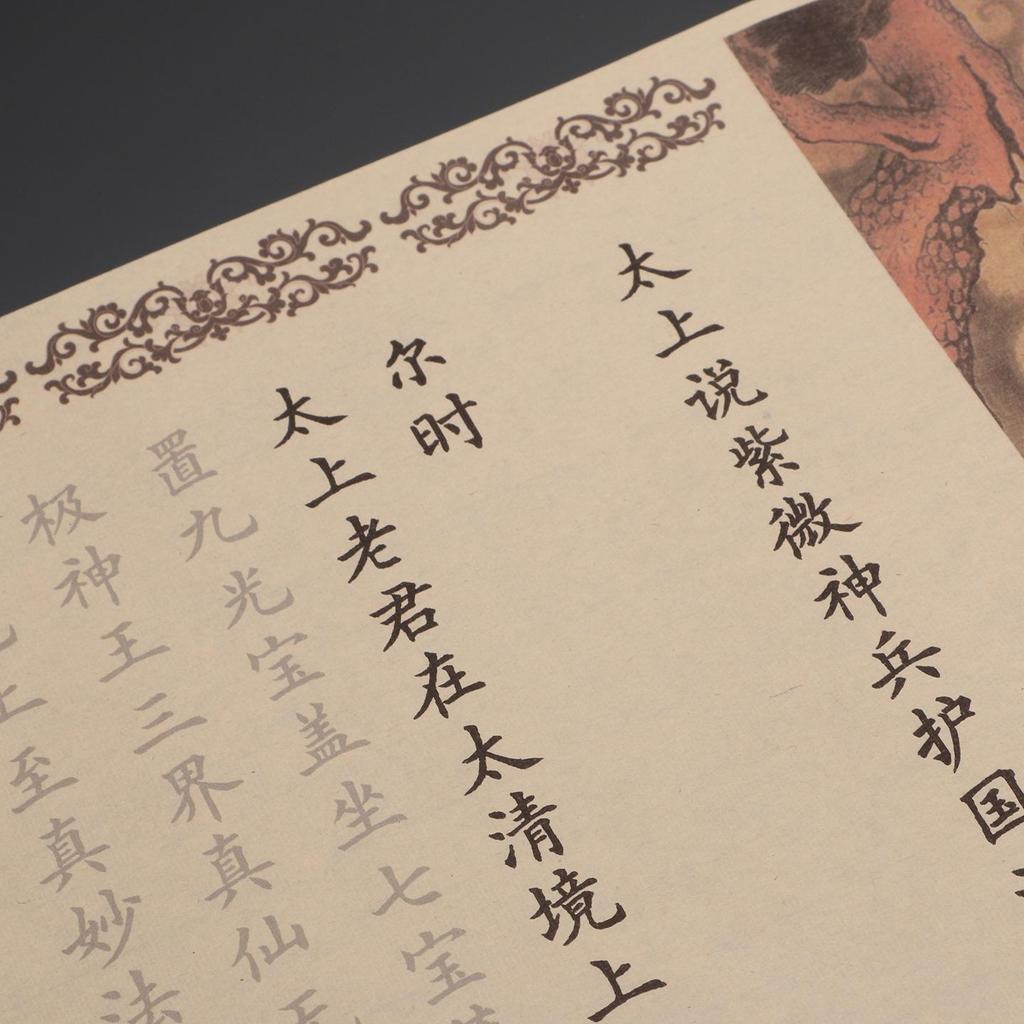 太上说紫微神兵护国
尔时
太上老君在太清境上
置九光宝盖坐七宝
极神王三界真仙
上至真妙法